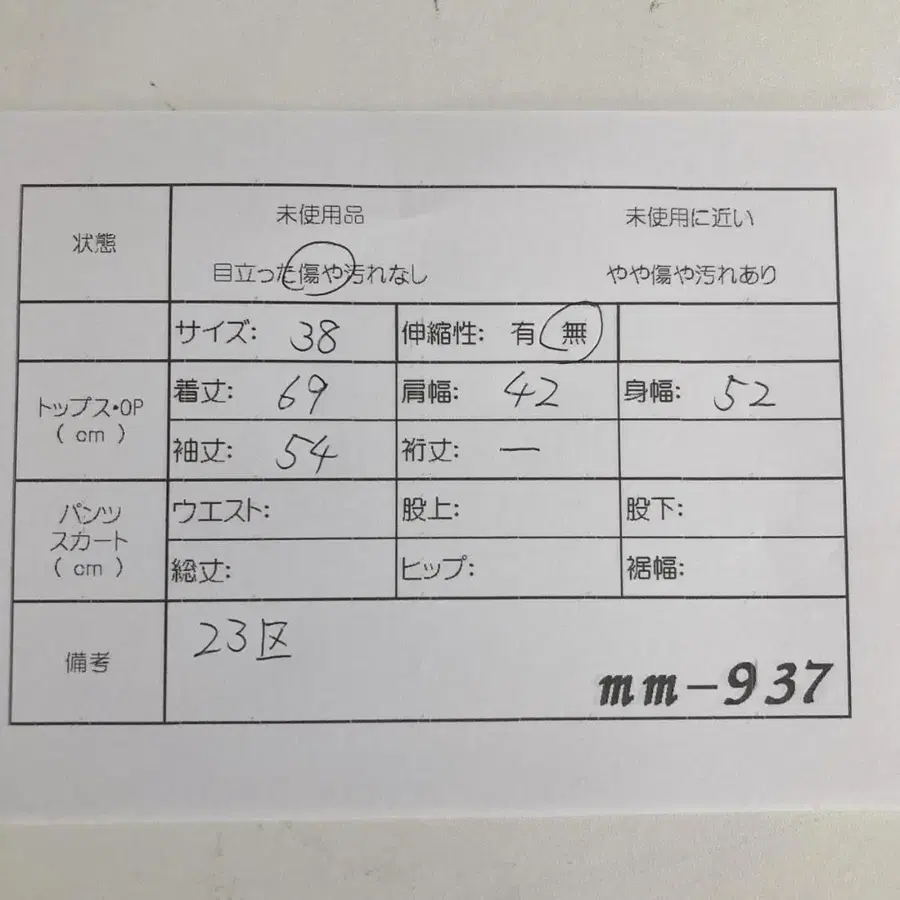 状態
未使用品 未使用に近い
目立った傷や汚れなし やや傷や汚れあり
サイズ: 38 伸縮性: 有 無
トップス・OP
( cm )
着丈: 69 肩幅: 42 身幅: 52
袖丈: 54 裄丈: ―
パンツ
スカート
( cm )
ウエスト: 股上: 股下:
総丈: ヒップ: 裾幅:
備考
23区
mm-937